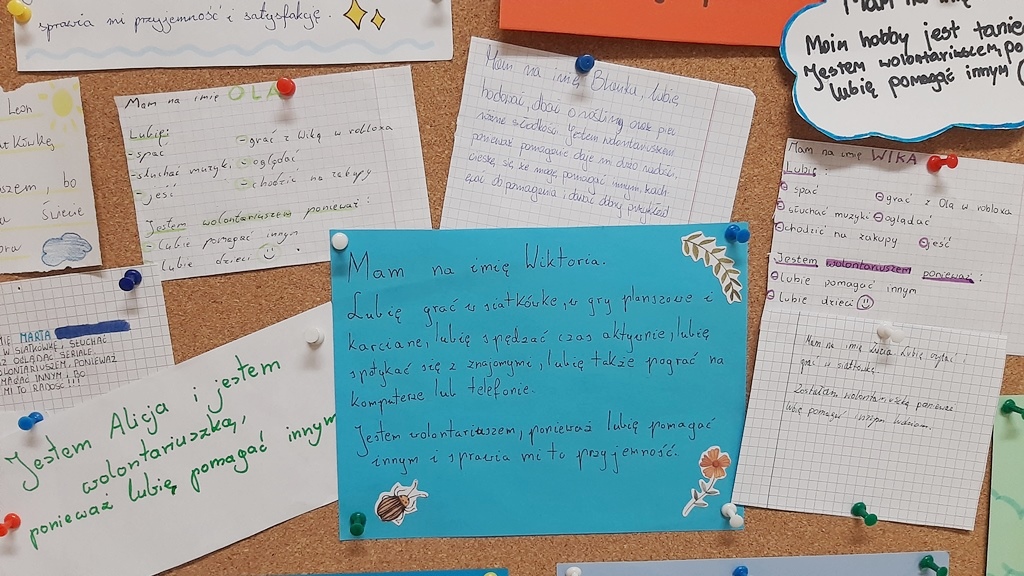 sprawia mi przyjemność i satysfakcję.
Mam na imię
Moim hobby jest
Jestem wolontariuszem, po
lubię pomagać innym
Leon
siatkówkę,
bo
Świecie
Mam na imię OLA
Lubię:
- spać
- słuchać muzyki
- jeść
- grać z Wiką w robloxa
- oglądać
- chodzić na zakupy
Jestem wolontariuszem ponieważ:
- Lubię pomagać innym
- Lubię dzieci
Mam na imię Blanka, lubię
rośliny oraz piec
różne słodkości. Jestem wolontariuszem
ponieważ pomaganie daje mi dużo radości,
cieszę się że mogę pomagać innym,
do pomagania i dawać dobry przykład
Mam na imię WIKA
Lubię:
spać
słuchać muzyki
chodzić na zakupy
grać z Olą w robloxa
oglądać
jeść
Jestem wolontariuszem ponieważ:
lubię pomagać innym
lubię dzieci
MARTA
W SIATKÓWKĘ, SŁUCHAĆ
OGLĄDAĆ SERIALE.
PONIEWAŻ
INNYM I BO
MI TO RADOŚĆ!!!
Jestem Alicja i jestem
wolontariuszką,
ponieważ lubię pomagać innym
Mam na imię Wiktoria.
Lubię grać w siatkówkę, w gry planszowe i
karciane, lubię spędzać czas aktywnie, lubię
spotykać się z znajomymi, lubię także pograć na
komputerze lub telefonie.
Jestem wolontariuszem, ponieważ lubię pomagać
innym i sprawia mi to przyjemność.
Mam na imię Zuzia. Lubię czytać i
grać w siatkówkę.
Zostałam wolontariuszką ponieważ
lubię pomagać innym ludziom.